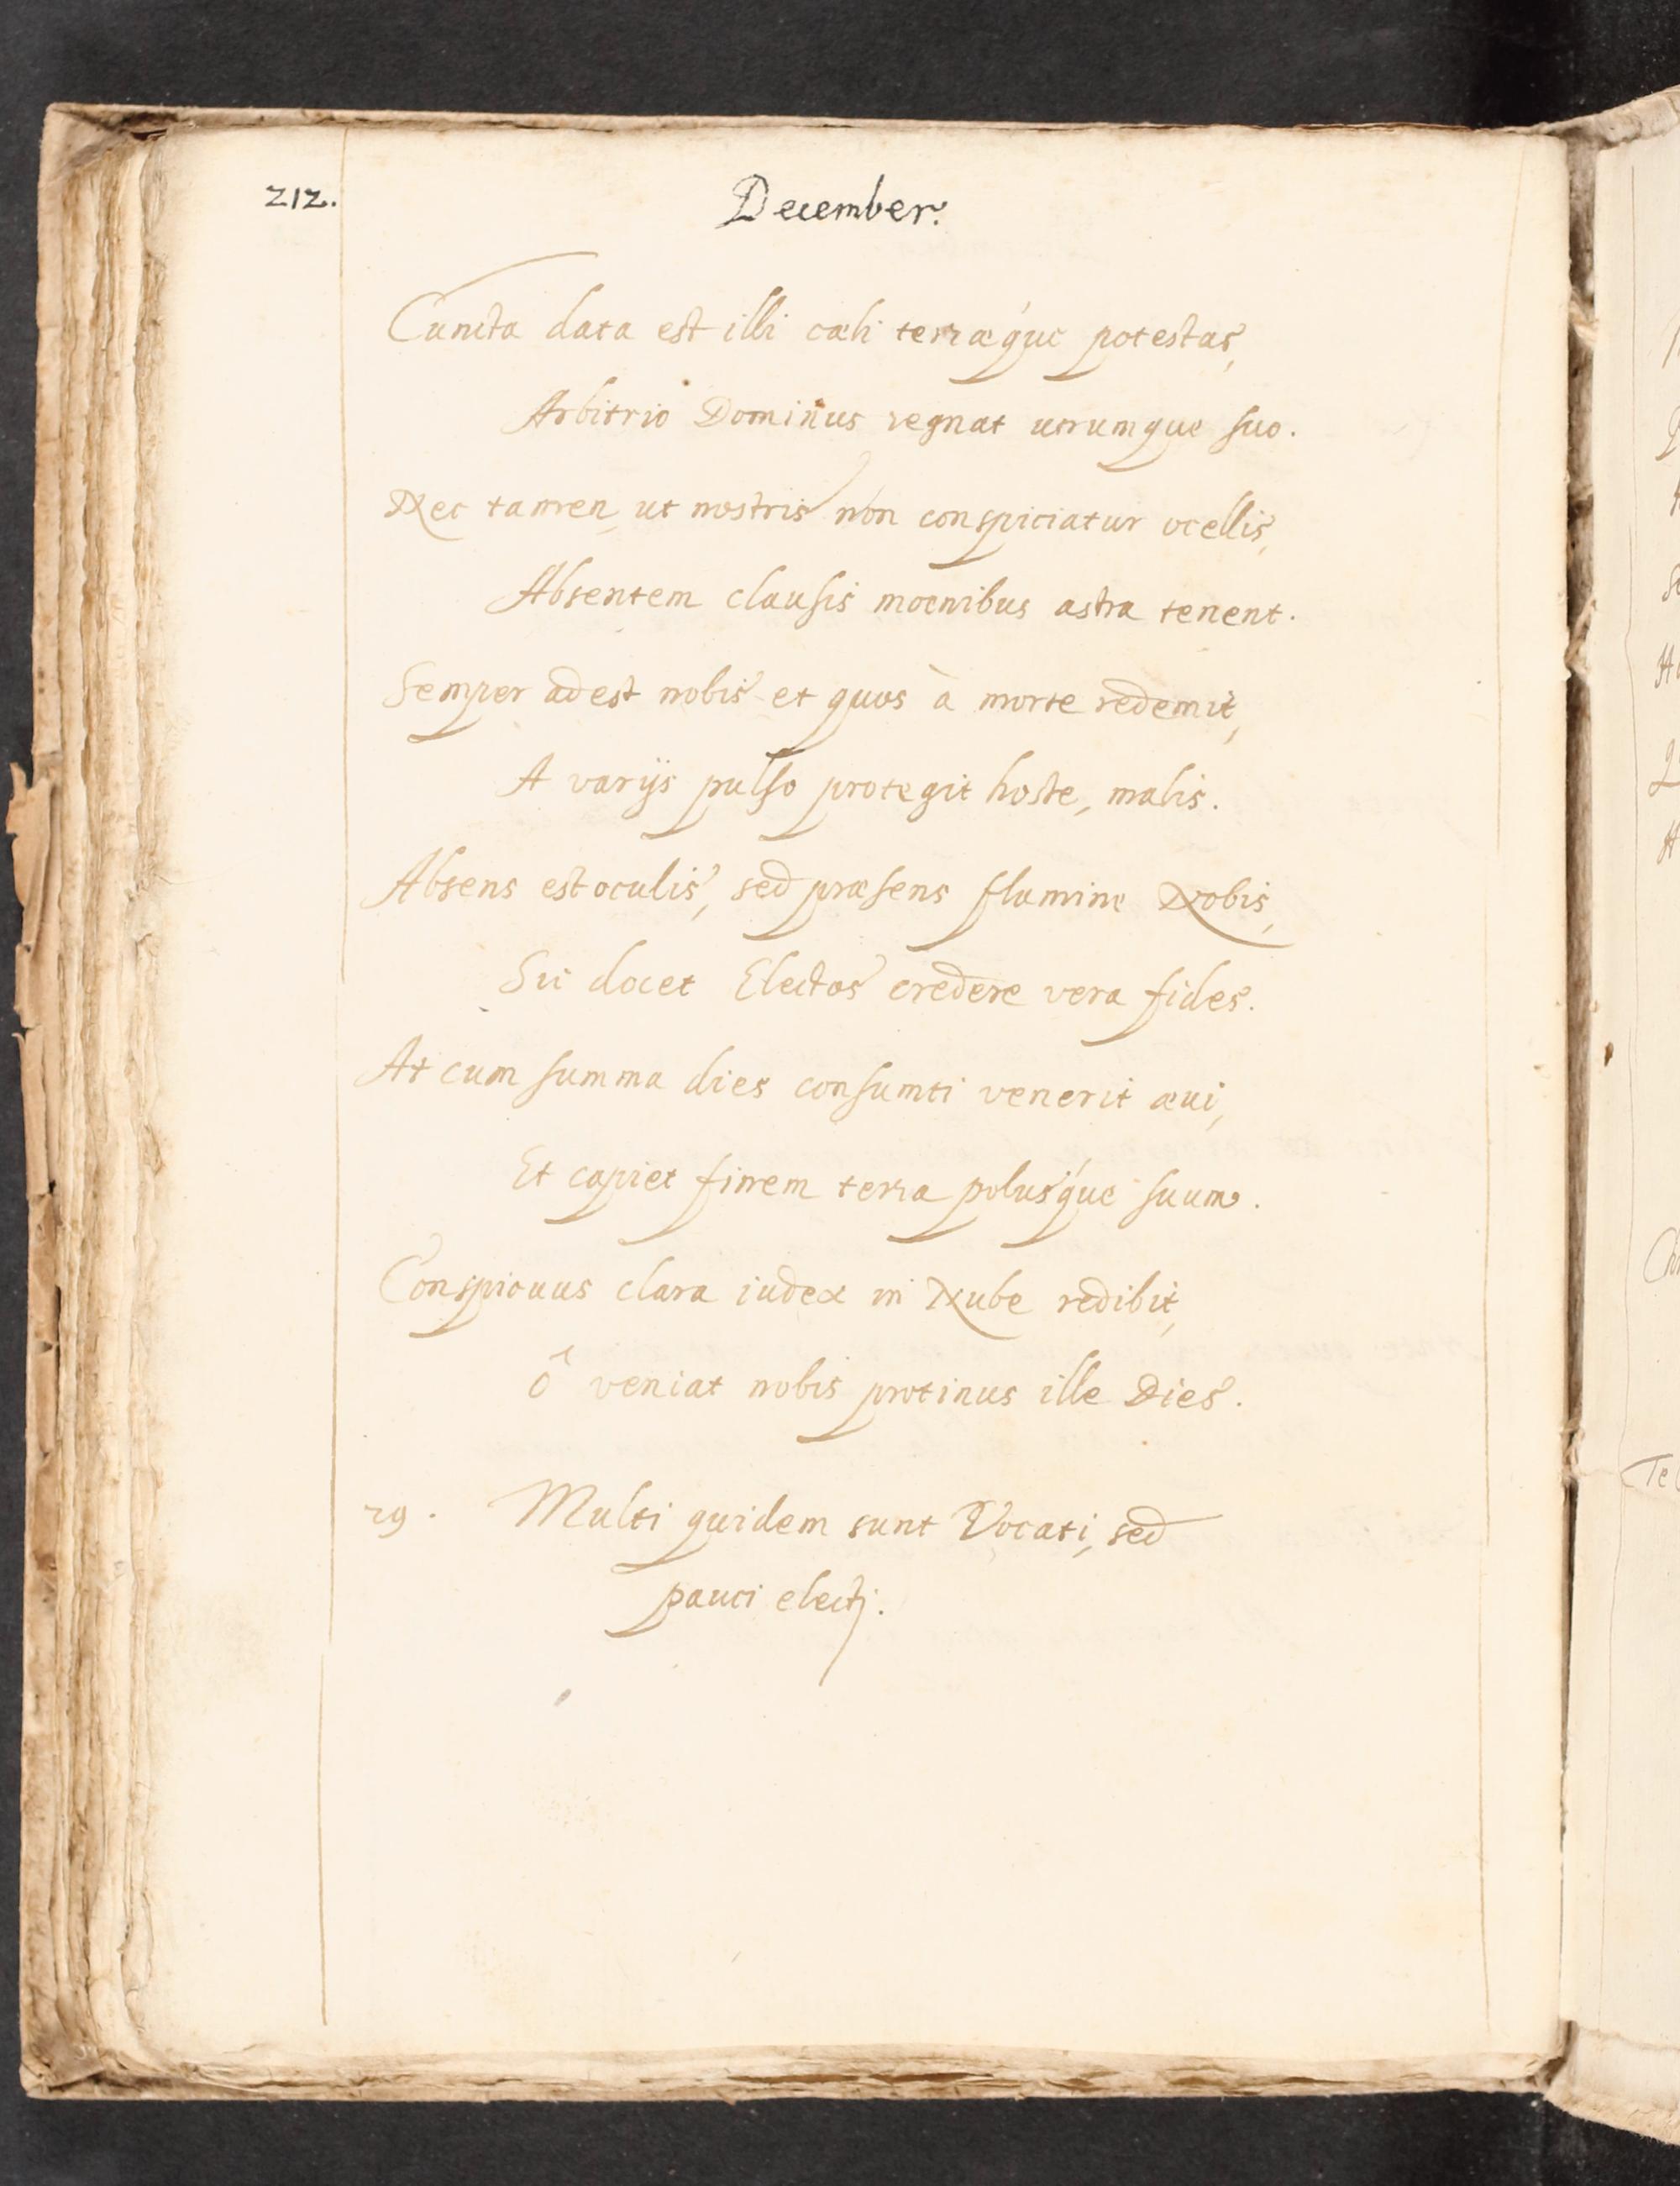 212.
December.
Cuncta data est illi cæli terræq́ue potestas,
Arbitrio Dominus regnat utrumque suo.
Nec tamen, ut nostris non conspiciatur ocellis,
Absentem clausis moenibus astra tenent.
Semper adest nobis et quos à morte redemit,
A varijs pulso protegit hoste, malis.
Absens est oculis, sed præsens flumine Nobis,
Sic docet Electos credere vera fides.
At cum summa dies consumti venerit æui,
Et capiet finem terra polusq́ue suum.
Conspicuus clara iudex in Nube redibit,
ô veniat nobis protinus ille Dies.
29. Multi quidem sunt Vocati, sed
pauci electj.